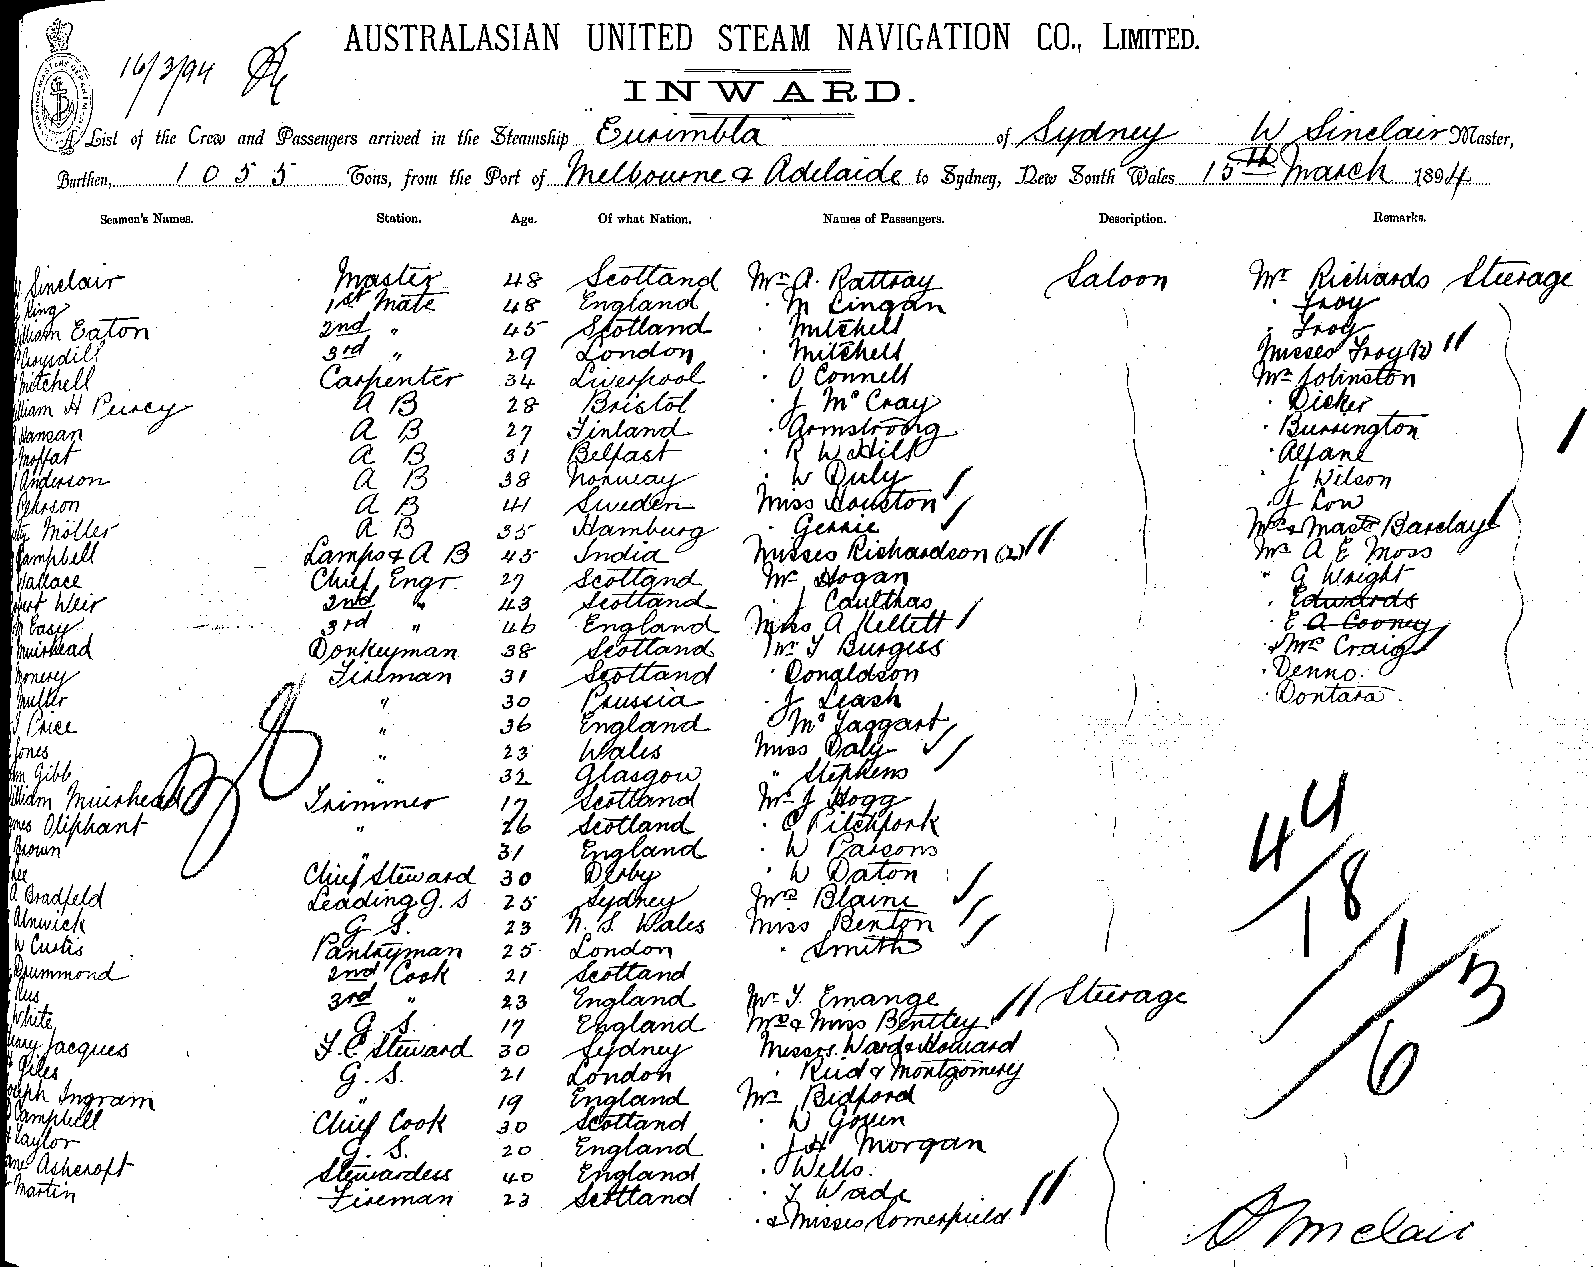 16/3/94
AUSTRALASIAN UNITED STEAM NAVIGATION CO., LIMITED.
INWARD.
A List of the Crew and Passengers arrived in the Steamship Eurimbla of Sydney W Sinclair Master,
Burthen, 1055 Tons, from the Port of Melbourne & Adelaide to Sydney, New South Wales 15th March 1894
Seamen's Names. Station. Age. Of what Nation. Names of Passengers. Description. Remarks.
Sinclair Master 48 Scotland Mr A. Rattray Saloon Mr Richards Steerage
King 1st Mate 48 England " M Lingan " Troy
William Eaton 2nd " 45 Scotland " Mitchell " Troy
3rd " 29 London " Mitchell Misses Troy (2)
Mitchell Carpenter 34 Liverpool " O Connell Mr Johnston
William H Peircy A B 28 Bristol " J McCray " Dicker
Hansan A B 27 Finland " Armstrong " Burrington
Moffat A B 31 Belfast " R W Hill " Alfane
Anderson A B 38 Norway " W Duly " J Wilson
Pehrson A B 41 Sweden Miss Houston " J Low
Moller A B 35 Hamburg " Gerrie Mrs & Mastr Barclay
Campbell Lamps & A B 45 India Misses Richardson (2) Mr A E Moss
Wallace Chief Engr 27 Scotland Mr Hogan " G Wright
Weir 2nd " 43 Scotland " J Caulthas " Edwards
Easy 3rd " 46 England Miss A Kellett " E A Cooney
Muirhead Donkeyman 38 Scotland Mr T Burgess & Mrs Craig
Fireman 31 Scotland " Donaldson " Denno
Muller " 30 Prussia " J Leash " Dontara
Price " 36 England " McTaggart
Jones " 23 Wales Miss Daly
Gibb " 32 Glasgow " Stephens
William Muirhead Trimmer 17 Scotland Mr J Hogg
James Oliphant " 26 Scotland " C Pitchfork
Brown " 31 England " W Parsons
Lee Chief Steward 30 Derby " W Daton
A Bradfeld Leading G. S 25 Sydney Mrs Blaine
Alnwick G S. 23 N. S. Wales Miss Benton
W Curtis Pantryman 25 London " Smith
Drummond 2nd Cook 21 Scotland
3rd " 23 England Mr T. Emange Steerage
White G S. 17 England Mrs & Miss Bentley
Henry Jacques F. C. Steward 30 Sydney Messrs. Ward & Howard
Giles G. S. 21 London " Reid & Montgomery
Joseph Ingram " 19 England Mr Bedford
Campbell Chief Cook 30 Scotland " W Goven
Taylor G. S. 20 England " J H Morgan
Jane Ashcroft Stewardess 40 England " Wells.
Martin Fireman 23 Scotland " T Wade
" & Misses Somerfield
44
18
1
1
3
6
Sinclair